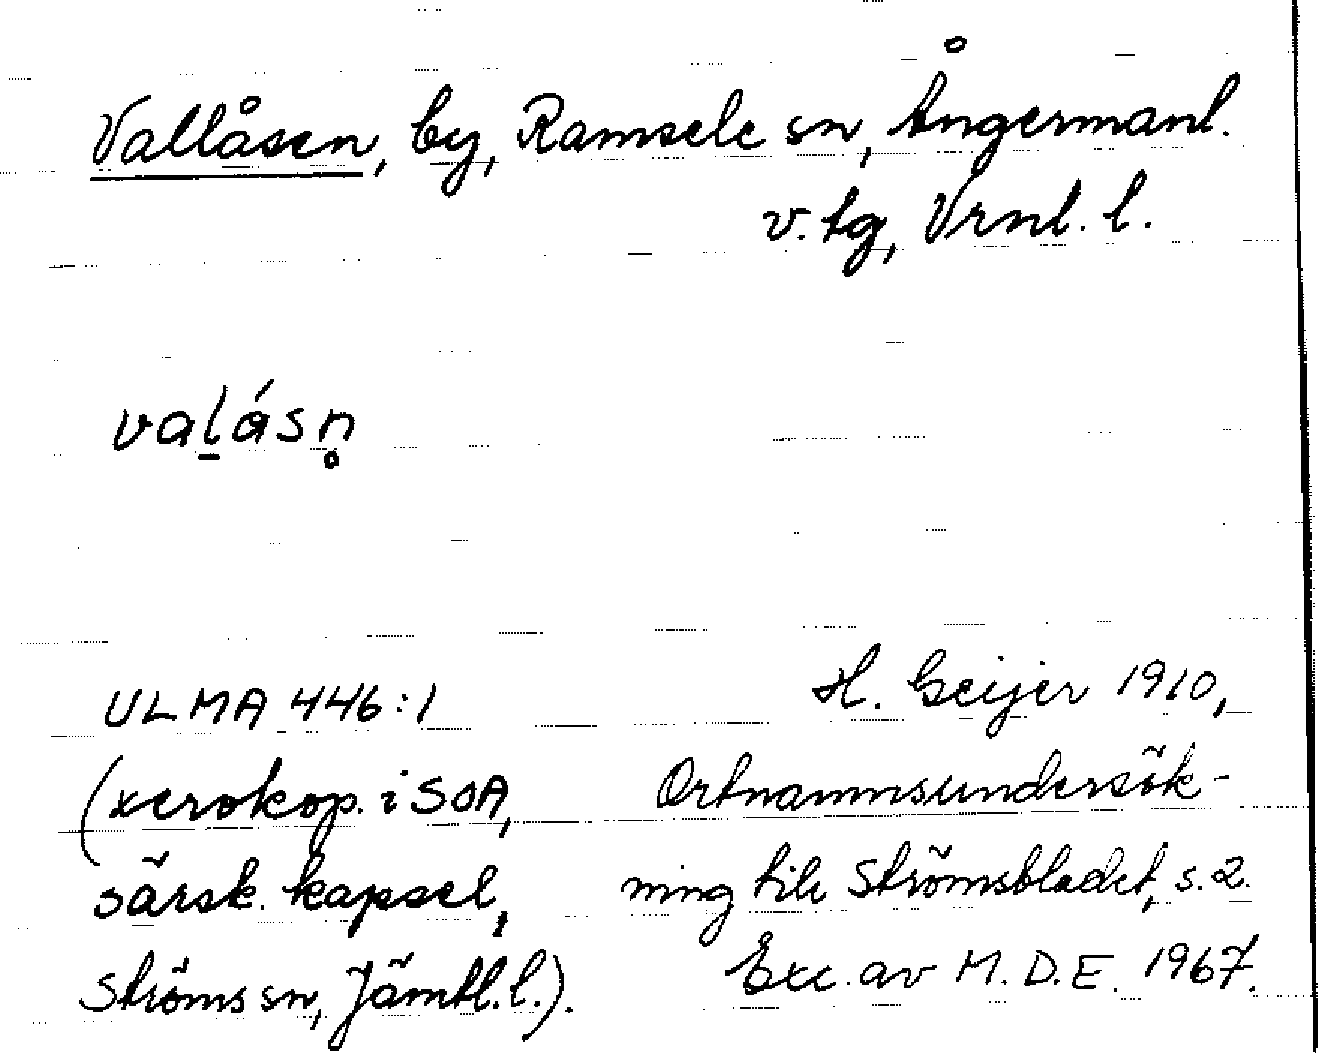 Vallåsen, by, Ramsele sn, Ångermanl.
v. tg, Vrnl. l.
va̠lásn̥
ULMA 446:1
(xerokop. i SOA,
särsk. kapsel,
Ströms sn, Jämtl. l.).
H. Geijer 1910,
Ortnamnsundersök-
ning till Strömsbladet, s. 2.
Exc. av M.D.E. 1967.